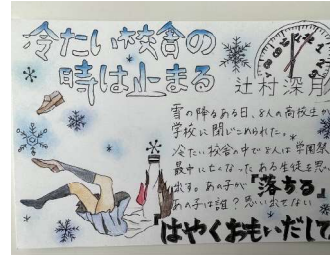 冷たい校舎の
時は止まる
辻村深月
雪の降るある日、8人の高校生が
学校に閉じこめられた。
冷たい校舎の中で8人は学園祭
最中に亡くなったある生徒を思い
出す。あの子が『落ちる』
あの子は誰?思い出せない
『はやくおもいだして